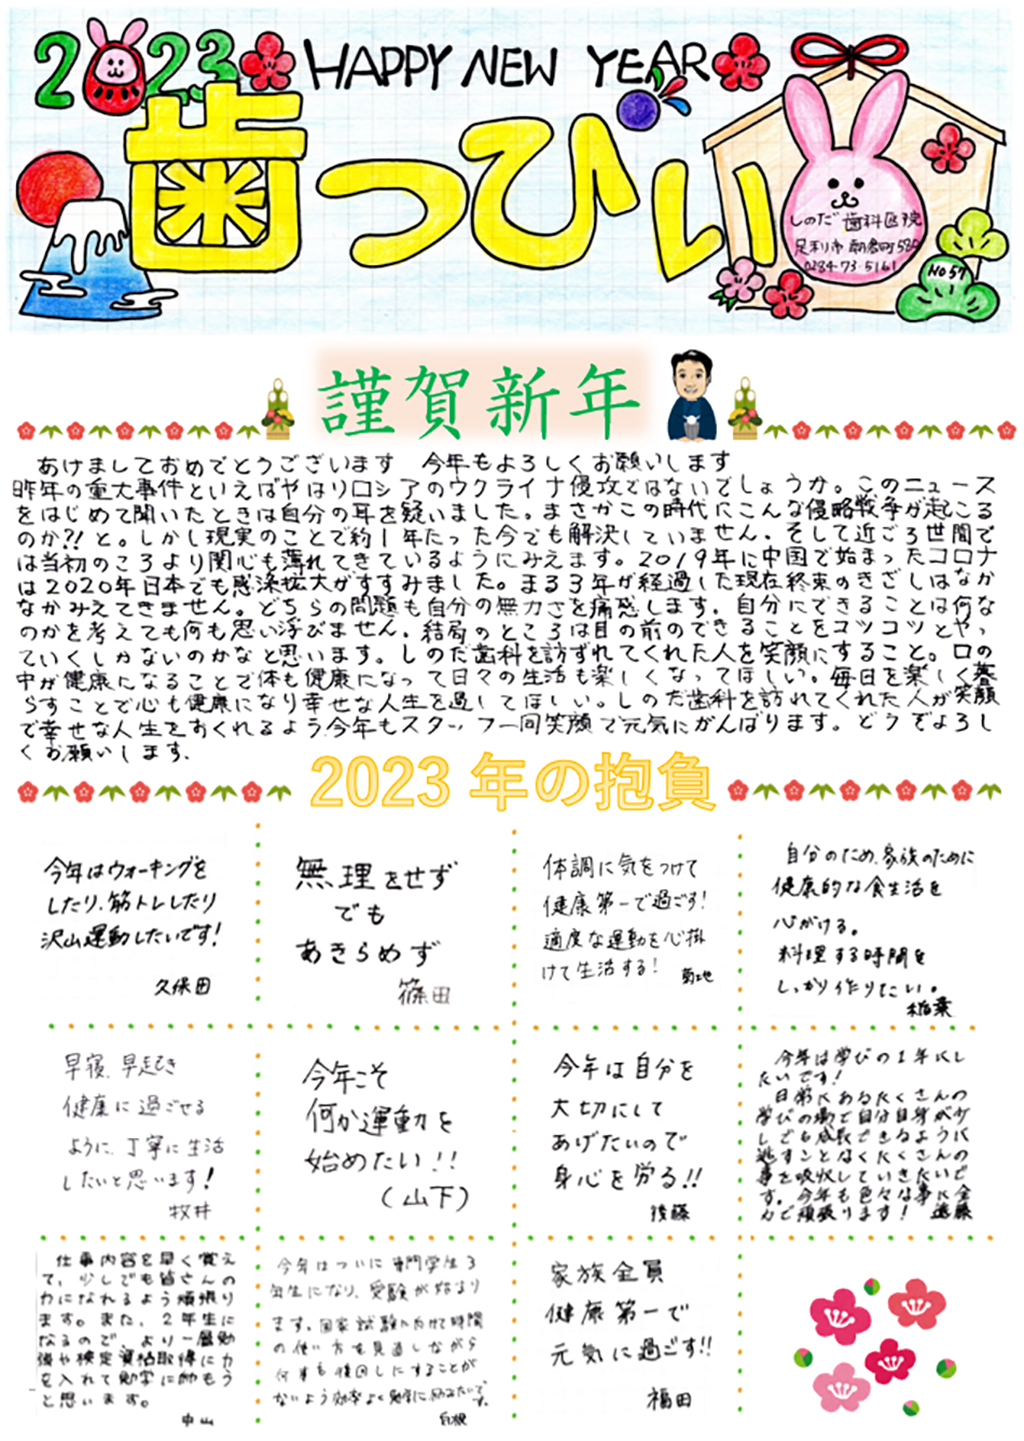 2023 HAPPY NEW YEAR
歯っぴぃ
しのだ歯科医院
足利市朝倉町584
0284-73-5161
No57
謹賀新年
あけましておめでとうございます 今年もよろしくお願いします
昨年の重大事件といえばやはりロシアのウクライナ侵攻ではないでしょうか。このニュース
をはじめて聞いたときは自分の耳を疑いました。まさかこの時代にこんな侵略戦争が起こる
のか?!と。しかし現実のことで約1年たった今でも解決していません。そして近ごろ世間で
は当初のころより関心も薄れてきているようにみえます。2019年に中国で始まったコロナ
は2020年日本でも感染拡大がすすみました。まる3年が経過した現在終束のきざしはなか
なかみえてきません。どちらの問題も自分の無力さを痛感します。自分にできることは何な
のかを考えても何も思い浮びません。結局のところは目の前のできることをコツコツとやっ
ていくしかないのかなと思います。しのだ歯科を訪ずれてくれた人を笑顔にすること。口の
中が健康になることで体も健康になって日々の生活も楽しくなってほしい。毎日を楽しく暮
らすことで心も健康になり幸せな人生を過してほしい。しのだ歯科を訪れてくれた人が笑顔
で幸せな人生をおくれるよう今年もスタッフ一同笑顔で元気にがんばります。どうぞよろし
くお願いします。
2023年の抱負
今年はウォーキングを
したり、筋トレしたり
沢山運動したいです!
久保田
無理をせず
でも
あきらめず
篠田
体調に気をつけて
健康第一で過ごす!
適度な運動を心掛
けて生活する!
菊地
自分のため、家族のために
健康的な食生活を
心がける。
料理する時間を
しっかり作りたい。
稲葉
早寝、早起き
健康に過ごせる
ように、丁寧に生活
したいと思います!
牧井
今年こそ
何か運動を
始めたい!!
(山下)
今年は自分を
大切にして
あげたいので
身心を労る!!
後藤
今年は学びの1年にし
たいです!
日常にあるたくさんの
学びの場で自分自身が少
しでも成長できるように
逃すことなくたくさんの
事を吸収していきたいで
す。今年も色々な事に全
力で頑張ります! 遠藤
仕事内容を早く覚え
て、少しでも皆さんの
力になれるよう頑張り
ます。また、2年生に
なるので、より一層勉
強や検定資格取得に力
を入れて勉学に励もう
と思います。
中山
今年はついに専門学生3
年生になり、受験が始まり
ます。国家試験に向けて時間
の使い方を見直しながら
何事も後回しにすることが
ないよう効率よく勉学に励みたいです。
白根
家族全員
健康第一で
元気に過ごす!!
福田